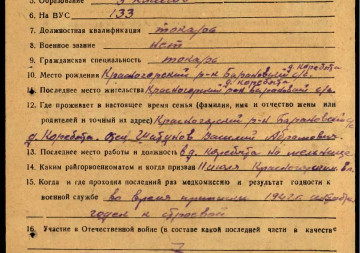 5. Образование 3 класса
6. На ВУС 133
7. Должностная квалификация токарь
8. Военное звание нет
9. Гражданская специальность токарь
д. Коребята
10. Место рождения Красногорский р-н Барановский с/с.
д. Коребята
11. Последнее место жительства Красногорский р-он Барановский с/с.
12. Где проживает в настоящее время семья (фамилия, имя и отчество жены или
родителей и точный их адрес) Красногорский р-н Барановский с/с
д. Коребята. Василий Абрамович
13. Последнее место работы и должность в д. Коребята на мельнице
14. Каким райгорвоенкоматом и когда призван Красногорским
15. Когда и где проходил последний раз медкомиссию и результат годности к
военной службе во время призыва 1942г. ноября
годен к строевой
16. Участие в Отечественной войне (в составе какой последней части в качестве